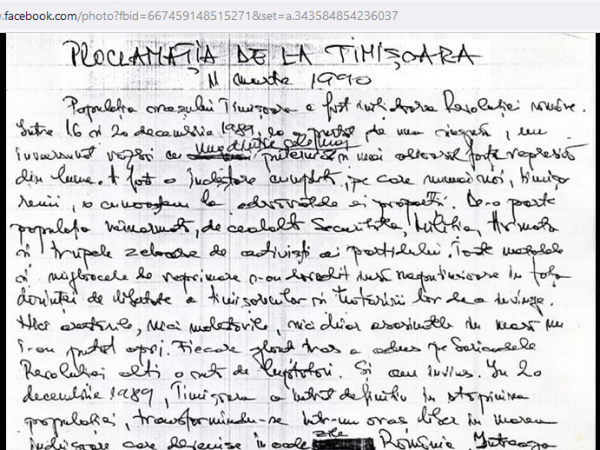 .facebook.com/photo?fbid=667459148515271&set=a.343584854236037
PROCLAMAȚIA DE LA TIMIȘOARA
11 martie 1990
Populația orașului Timișoara a fost inițiatoarea Revoluției române.
Între 16 și 20 decembrie 1989, ea a purtat, de una singură, un
înverșunat război cu unul dintre cele mai puternice și mai odioase forțe represive
din lume. A fost o încleștare cumplită, pe care numai noi, timișo-
renii, o cunoaștem la adevăratele ei proporții. De-o parte
populația neînarmată, de cealaltă Securitatea, Miliția, Armata
și trupele zeloase de activiști ai partidului. Toate metodele
și mijloacele de reprimare s-au dovedit însă neputincioase în fața
dorinței de libertate a timișorenilor și hotărârii lor de a învinge.
Nici arestările, nici molestările, nici chiar asasinatele în masă nu
i-au putut opri. Fiecare glonț tras a adus pe baricadele
Revoluției alți o sută de luptători. Și am învins. În 20
decembrie 1989, Timișoara a intrat definitiv în stăpânirea
populației, transformându-se într-un oraș liber în marea
închisoare care devenise în acele zile România. Întreaga